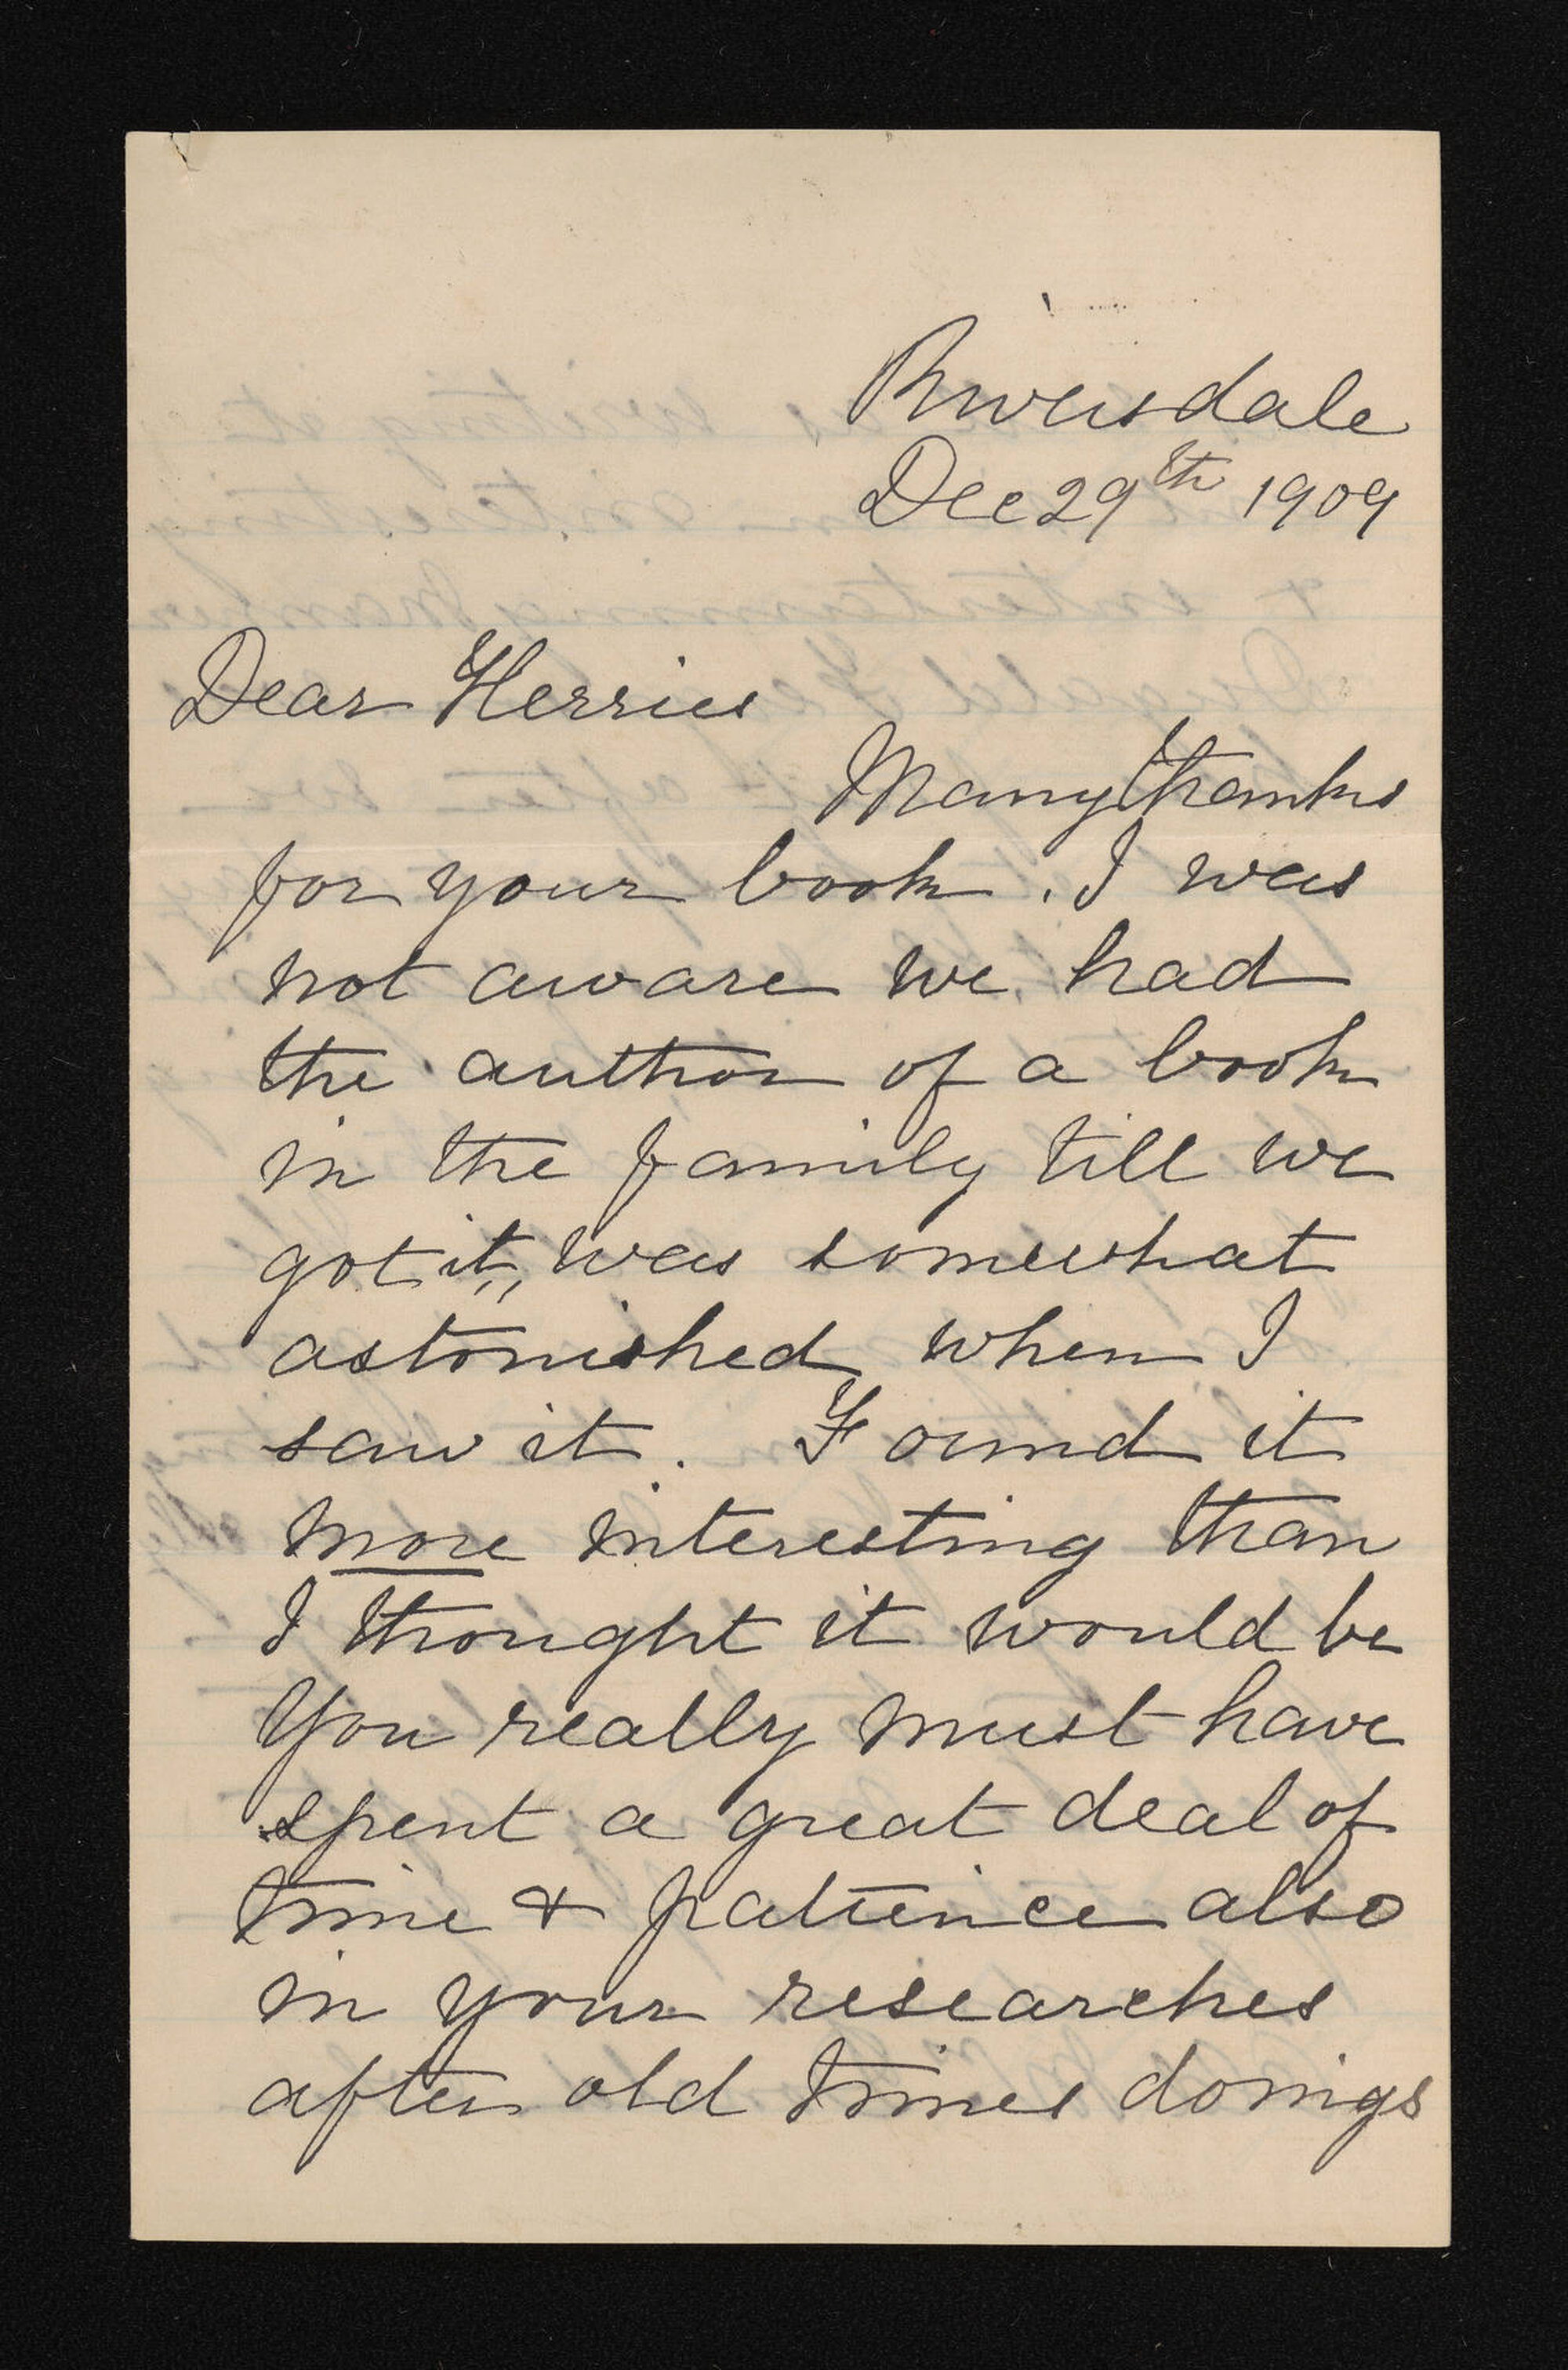 Riversdale
Dec 29th 1909
Dear Herries
Many thanks
for your book. I was
not aware we had
the author of a book
in the family till we
got it, was somewhat
astonished when I
saw it. Found it
more interesting than
I thought it would be
You really must have
spent a great deal of
time & patience also
in your researches
after old times doings